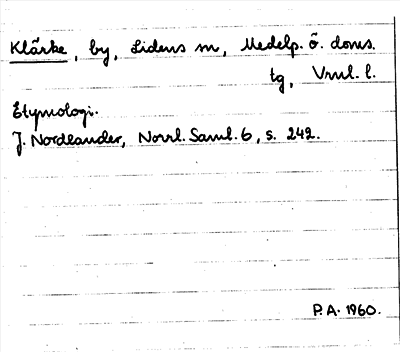 Klärke, by, Lidens sn, Medelp. ö. doms.
tg, Vnrl. l.
Etymologi.
J. Nordlander, Norrl. Saml. 6, s. 242.
P.A. 1960.